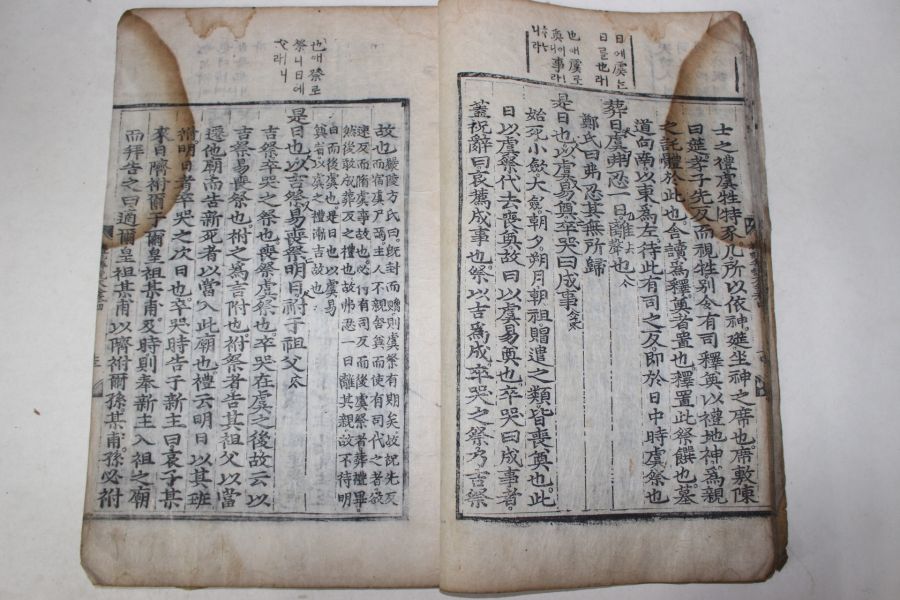 日애虞는
日를也라
也애虞로
事라
니라
士之禮虞牲特豕几所以依神筵坐神之席也席敷陳
曰筵孝子先反而視牲別令有司釋奠以禮地神爲親
之託體於此也舍讀爲釋奠者置也釋置此祭饌也墓
道向南以東爲左待此有司之反即於日中時虞祭也
葬日虞弗忍一日離也
鄭氏曰弗忍其無所歸
是日也以虞易奠卒哭曰成事
始死小斂大斂朝夕朔月朝祖賵遣之類皆喪奠也此
日以虞祭代去喪奠故曰以虞易奠也卒哭曰成事者
蓋祝辭曰哀薦成事也祭以吉爲成卒哭之祭乃吉祭
也애祭로
祭니日에
故也嚴陵方氏曰旣封而贈則虞祭有期矣故祝先反
而宿虞尸焉主人不親舍奠而使有司代之者欲
速反而脩虞事故也必俟有司反而後虞祭者葬禮畢
然後敢成葬反之禮也故弗忍一日離其親故不待明
日而後虞也是日也以虞易
奠者以虞之禮漸吉故也
是日也以吉祭易喪祭明日祔于祖父
吉祭卒哭之祭也喪祭虞祭也卒哭在虞之後故云以
吉祭易喪祭也祔之爲言附也祔祭者告其祖父以當
遷他廟而告新死者以當入此廟也禮云明日以其班
祔明日者卒哭之次日也卒哭時告于新主曰哀子某
來日隮祔爾于爾皇祖某甫及時則奉新主入祖之廟
而拜告之曰適爾皇祖某甫以隮祔爾孫某甫孫必祔